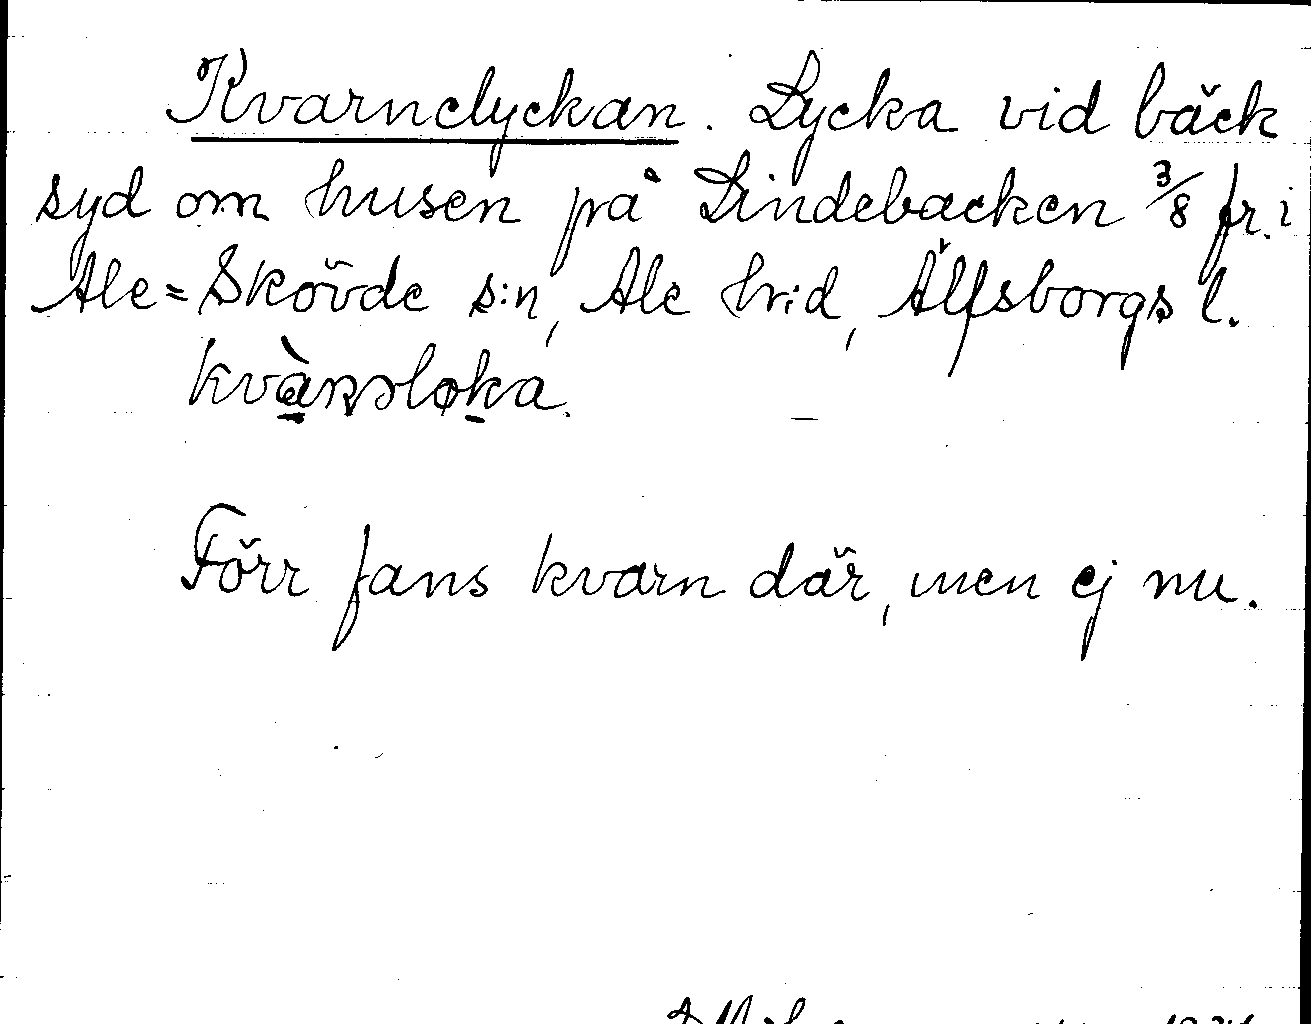 Kvarnelyckan. Lycka vid bäck
syd om husen på Lindebacken 3/8 fr. i
Ale=Skövde s:n, Ale hrd, Älfsborgs l.
Förr fans kvarn där, men ej nu.